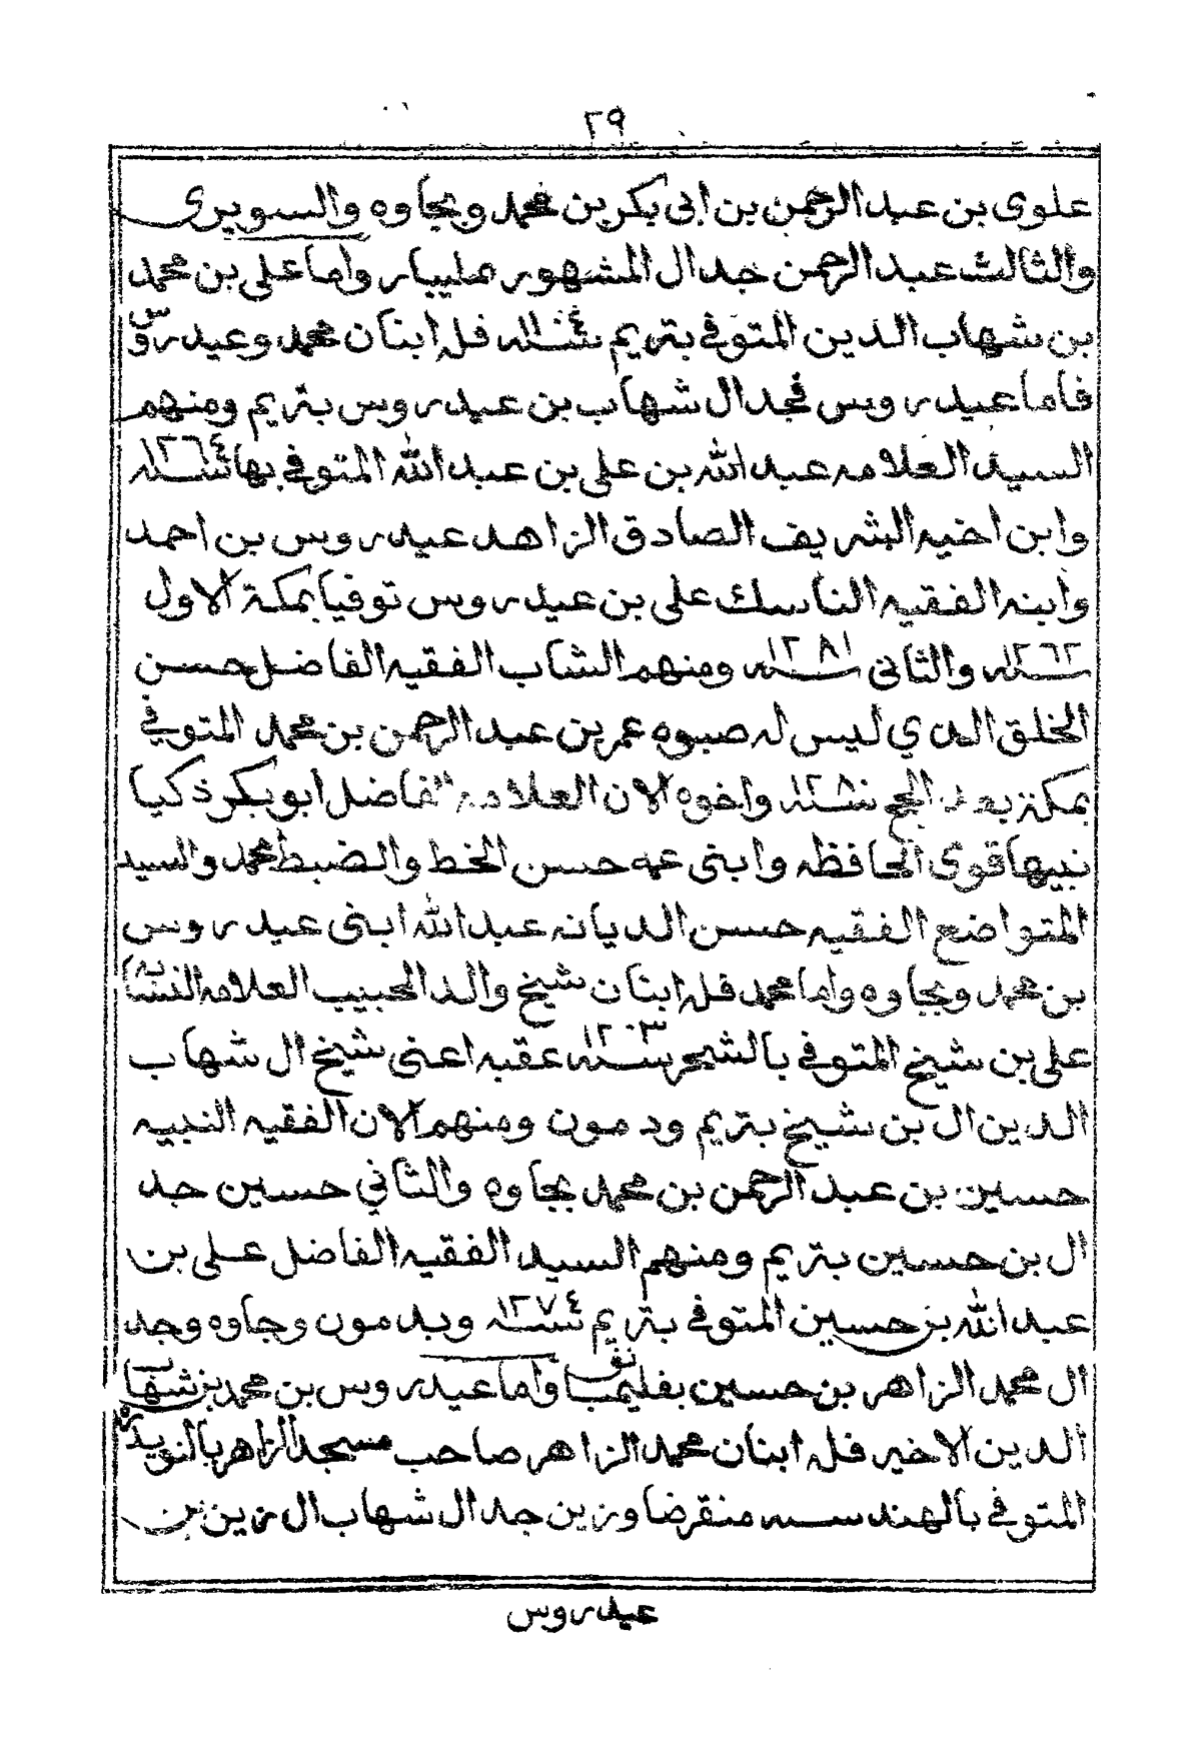 ٢٩
علوى بن عبد الرحمن بن ابى بكر بن محمد وبجاوه والسويرى
والثالث عبد الرحمن جد ال المشهور بمليبار واما على بن محمد
بن شهاب الدين المتوفي بتريم سنه فله ابنان محمد وعيدروس
فاما عيدروس فجد ال شهاب بن عيدروس بتريم ومنهم
السيد العلامه عبد الله بن على بن عبد الله المتوفي بها سنه ١٢٦٤
وابن اخيه الشريف الصادق الزاهد عيدروس بن احمد
وابنه الفقيه الناسك على بن عيدروس توفيا بمكة الاول
سنه ١٢٦٢ والثانى سنه ١٢٨١ ومنهم الشاب الفقيه الفاضل حسن
الخلق الذي ليس له صبوه عمر بن عبد الرحمن بن محمد المتوفي
بمكة بعد الحج سنه ١٢٨٠ واخوه الان العلامه الفاضل ابو بكر ذكيا
نبيها قوى الحافظه وابنى عمه حسن الخط والضبط محمد والسيد
المتواضع الفقيه حسن الديانه عبد الله ابنى عيدروس
بن محمد وبجاوه واما محمد فله ابنان شيخ والد الحبيب العلامه النسابه
على بن شيخ المتوفي بالشحر سنه ١٢٠٣ عقبه اعنى شيخ ال شهاب
الدين ال بن شيخ بتريم ودمون ومنهم الان الفقيه النبيه
حسين بن عبد الرحمن بن محمد بجاوه والثاني حسين جد
ال بن حسين بتريم ومنهم السيد الفقيه الفاضل على بن
عبد الله بن حسين المتوفي بتريم سنه ١٢٧٤ وبدمون وجاوه وجد
ال محمد الزاهر بن حسين بفليمبانق واما عيدروس بن محمد بن شهاب
الدين الاخير فله ابنان محمد الزاهر صاحب مسجد الزاهر بالنويدره
المتوفي بالهند سنه منقرضا وزين جد ال شهاب ال زين بن
عيدروس